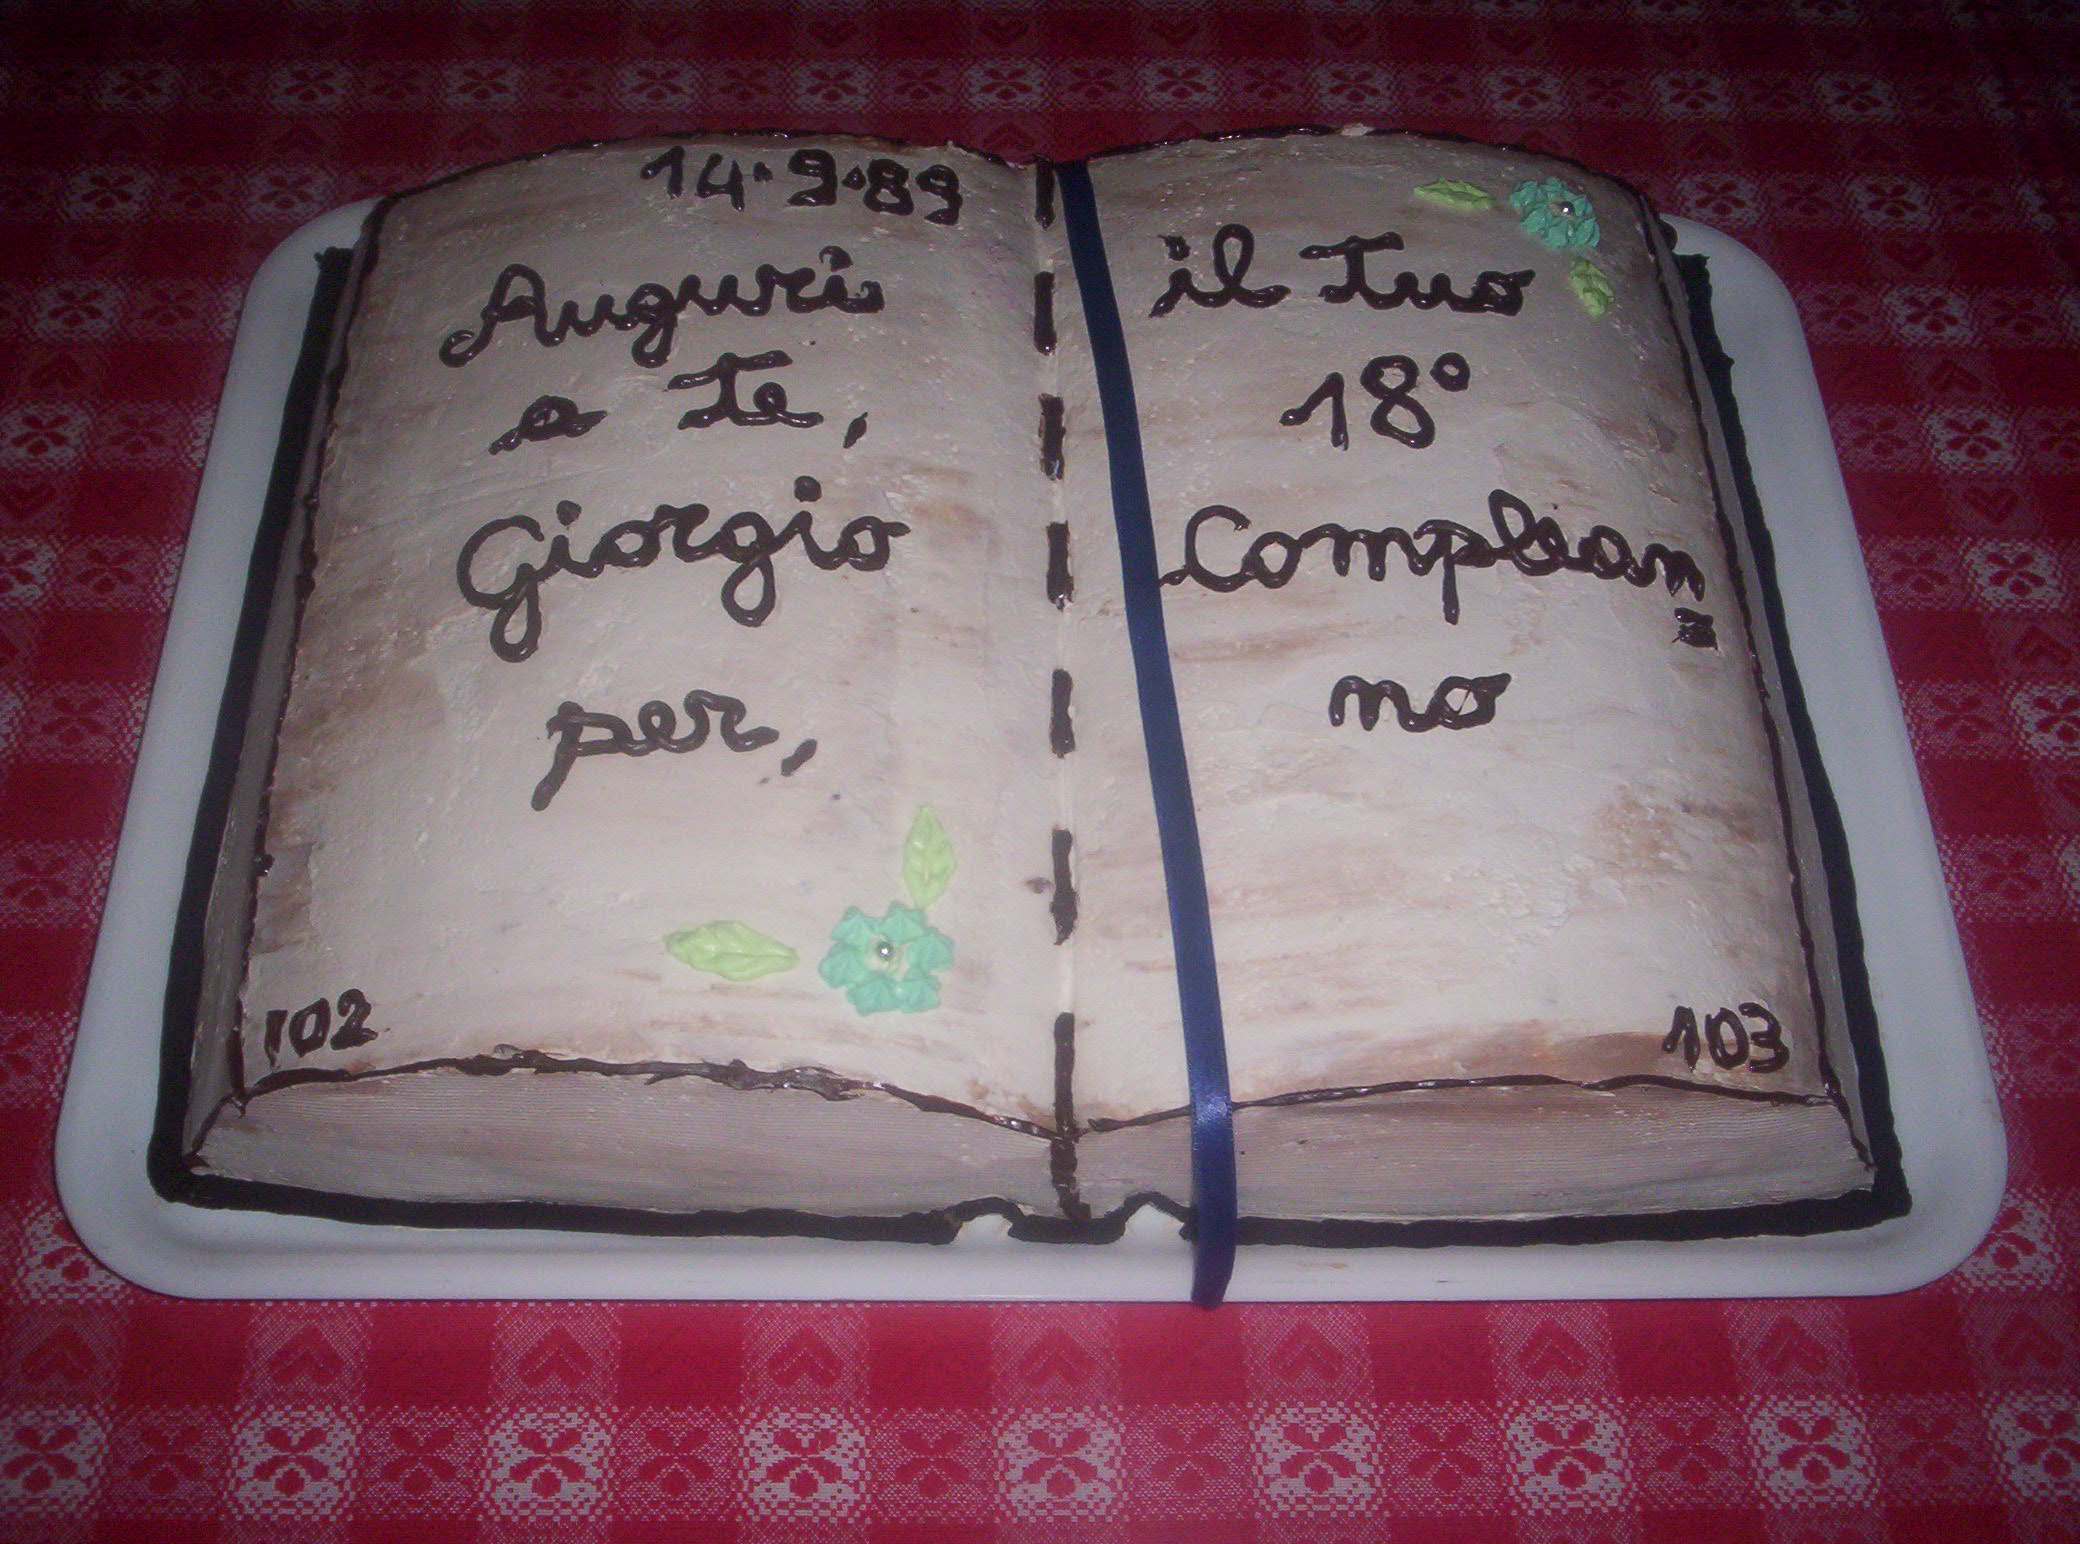 14·9·89
Auguri
a Te,
Giorgio
per,
102
il Tuo
18°
Complean=
no
103